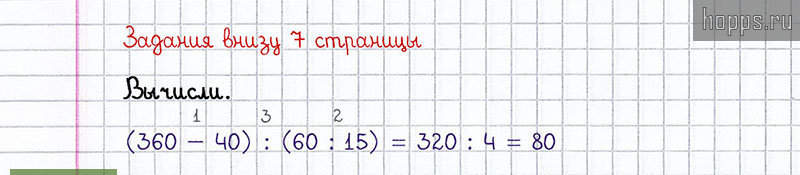 hopps.ru
Задания внизу 7 страницы
Вычисли.
1 3 2
(360 – 40) : (60 : 15) = 320 : 4 = 80